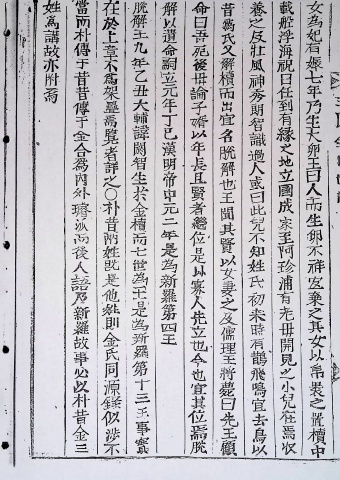 女爲妃有娠七年乃生大卵王曰人而生卵不祥宜棄之其女以帛裹之置櫝中
載船浮海祝曰任到有緣之地立國成家至阿珍浦有老母開見之小兒在焉收
養之及壯風神秀朗智識過人或曰此兒不知姓氏初來時有鵲飛鳴宜去鳥以
昔爲氏又解櫝而出宜名脫解也王聞其賢以女妻之及儒理王將薨曰先王顧
命曰吾死後毋論子婿以年長且賢者繼位是以寡人先立也今也宜其位焉脫
解以遺命嗣立元年丁巳漢明帝中元二年是爲新羅第四王
脫解王九年乙丑大輔諱閼智生於金櫝而七世爲王是爲新羅第十三王事實
在於上章不爲架疊焉覽者詳之○朴昔兩姓旣是他姓則金氏同源錄似涉不
當而朴傳于昔昔傳于金合爲內外璿派而後人語及新羅故事必以朴昔金三
姓爲講故亦附焉